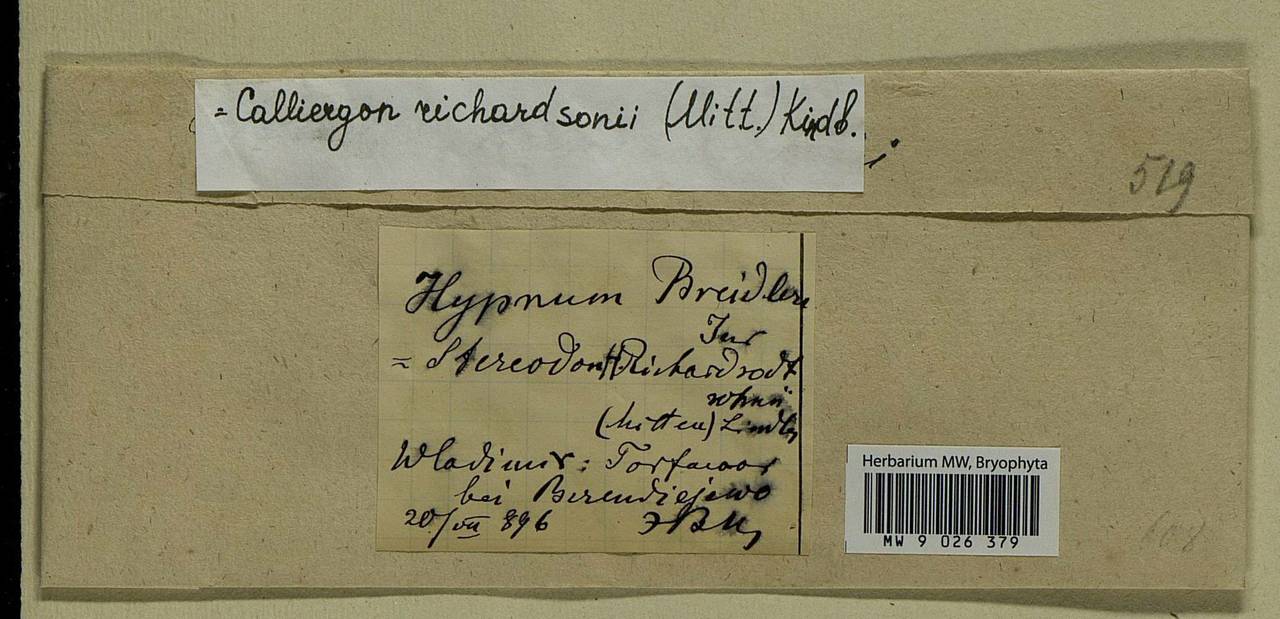 = Calliergon richardsonii (Mitt.) Kindb.
519
Hypnum Breidleri
Jur
= Stereodon Richard
(Mitten) Lindb
Wladimir: Torfmoor
bei Berendiejewo
20/VII 896
Herbarium MW, Bryophyta
MW 9 026 379
608